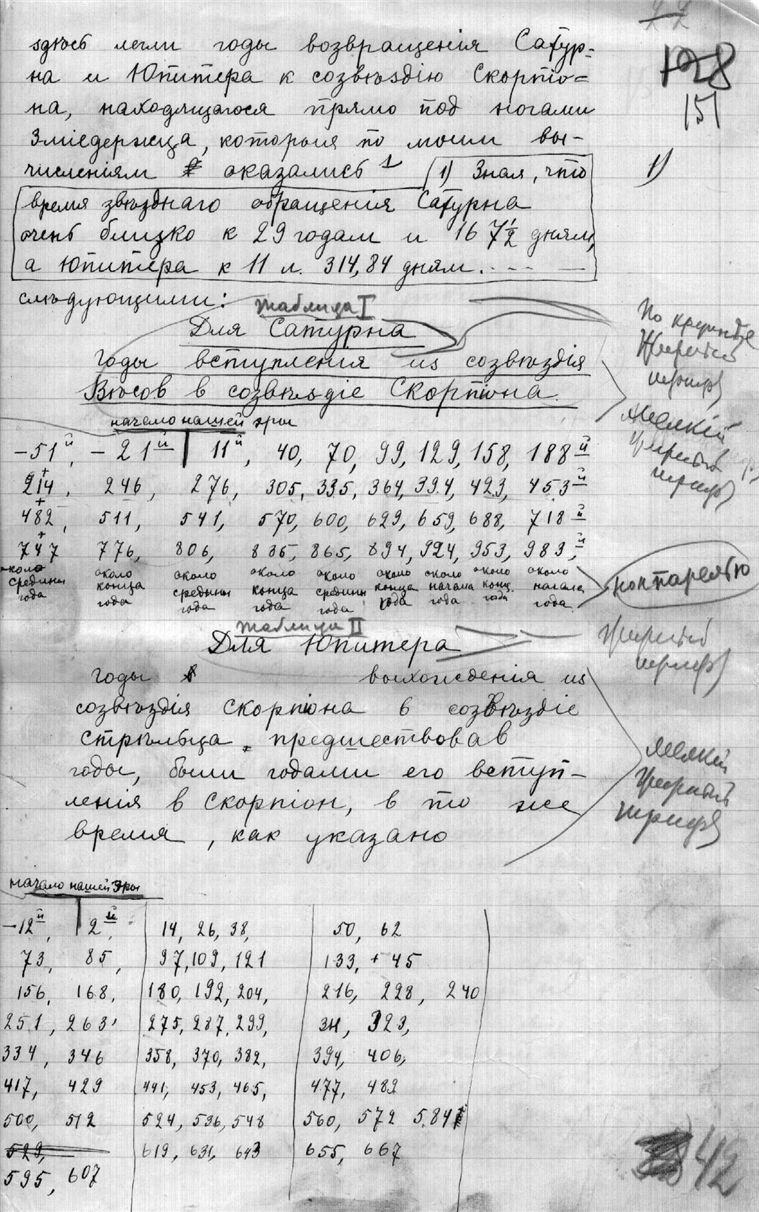 здѣсь легли годы возвращенія Сатур-
на и Юпитера к созвѣздію Скорпіо=
на, находящагося прямо под ногами
Зміедержца, которыя по моим вы-
численіям оказались 1) Зная, что
время звѣзднаго обращенія Сатурна
очень близко к 29 годам и 167½ дням,
а Юпитера к 11 л. 314,84 дням. . - - —
слѣдующими:
128
151
1)
Таблица I
Для Сатурна
годы вступленія из созвѣздія
Вѣсов в созвѣздіе Скорпіона.
начало нашей эры
-51й, -21й 11й, 40, 70, 99, 129, 158, 188й
214, 246, 276, 305, 335, 364, 394, 423, 453й
482, 511, 541, 570, 600, 629, 659, 688, 718й
747 776, 806, 835, 865, 894, 924, 953, 983,й
около средины года
около конца года
около средины года
около конца года
около средины года
около конца года
около начала года
около конц. года
около начала года.
жирный
шрифт
мелкій
шрифт
нонпарелью
Таблица II
Для Юпитера
жирный
шрифт
годы выхожденія из
созвѣздія Скорпіона в созвѣздіе
Стрѣльца, предшествовав
годы, были годами его вступ-
ленія в Скорпіон, в то же
время, как указано
мелкій
шрифт
начало нашей эры
-12й, 2й, 14, 26, 38, 50, 62
73, 85, 97, 109, 121 133, +45
156, 168, 180, 192, 204, 216, 228, 240
251, 263, 275, 287, 299, 311, 323,
334, 346 358, 370, 382, 394, 406,
417, 429 441, 453, 465, 477, 489
500, 512 524, 536, 548 560, 572 584
529, 619, 631, 643 655, 667
595, 607
42